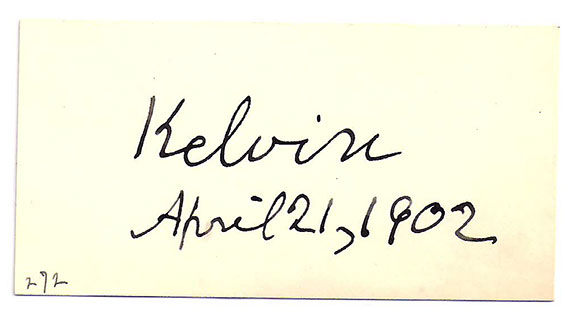 Kelvin
April 21, 1902
292